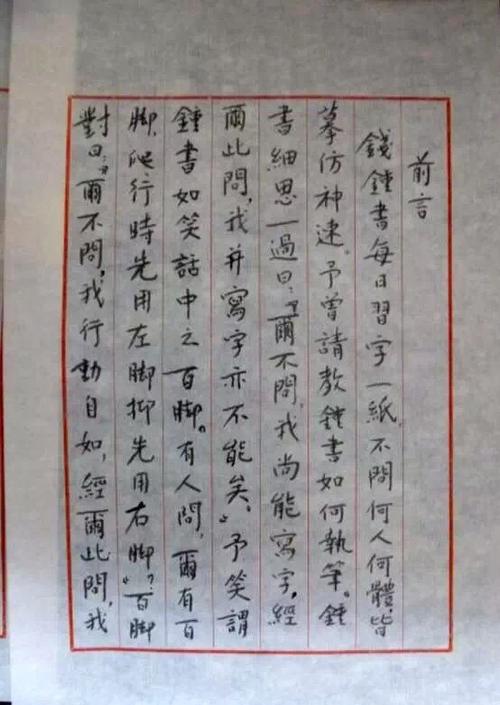 前言
錢鍾書每日習字一紙,不問何人何體,皆
摹仿神速。予曾請教鍾書如何執筆。鍾
書細思一過曰:“爾不問,我尚能寫字,經
爾此問,我并寫字亦不能矣。”予笑謂
鍾書如笑話中之百脚。有人問,爾有百
脚,爬行時先用左脚抑先用右脚?百脚
對曰:“爾不問,我行動自如,經爾此問,我